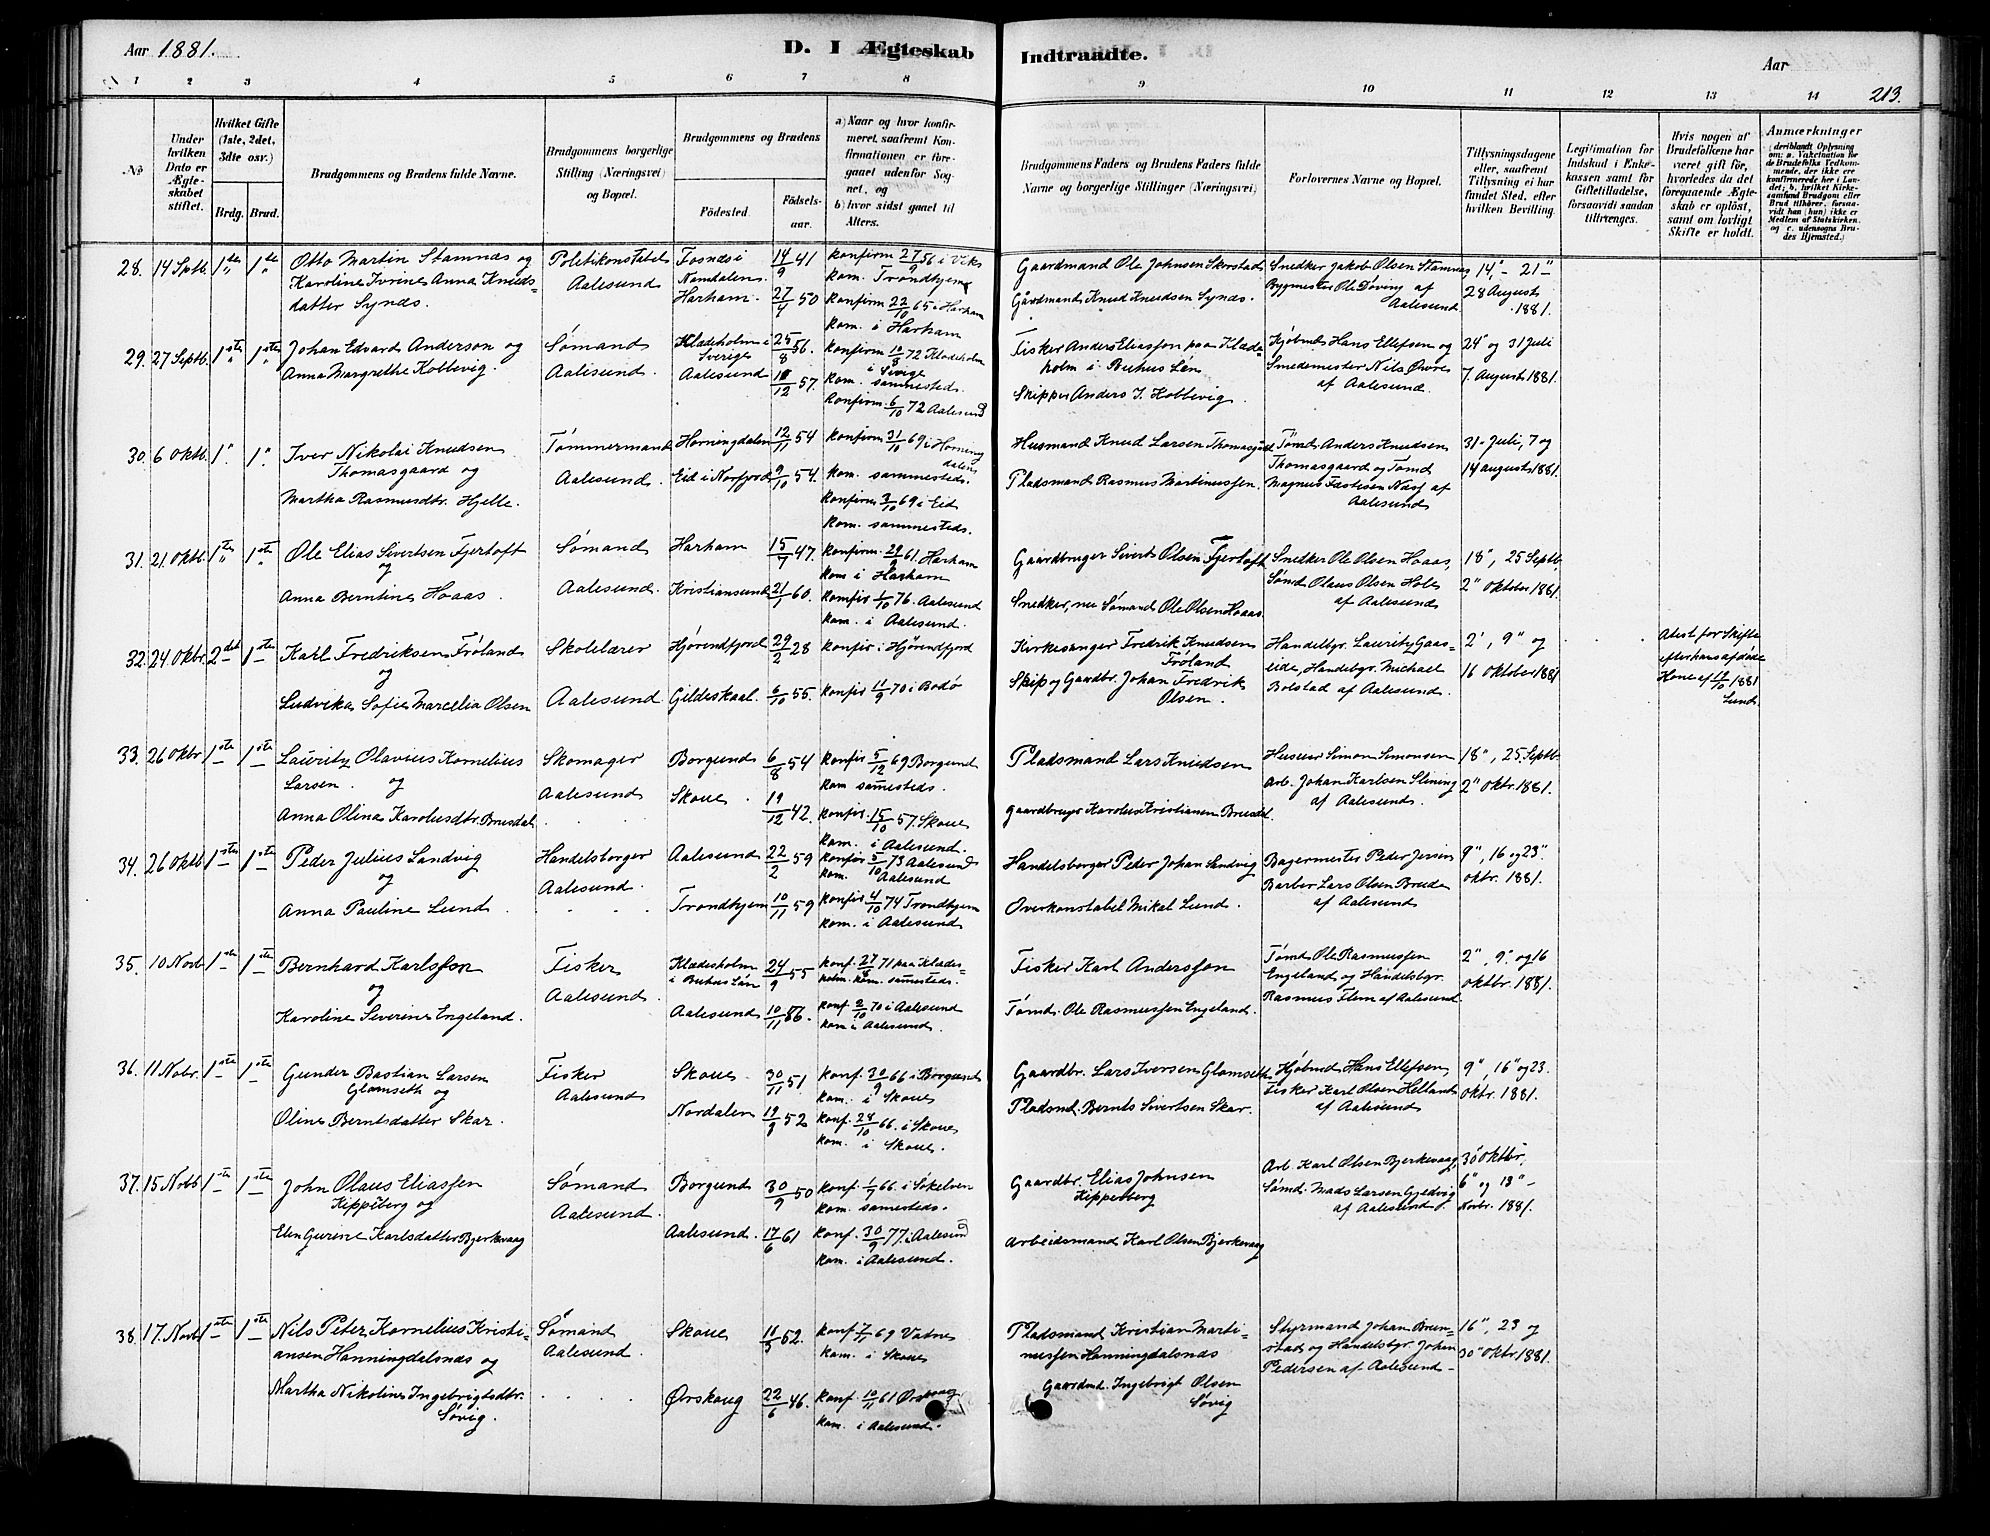 Aar 1881.
D. I Ægteskab
Indtraadte.
Aar
213.
1 2 3 4 5 6 7 8 9 10 11 12 13 14
No
Under hvilken Dato er Ægteskabet stiftet.
Hvilket Gifte (1ste, 2det, 3die osv.)
Brdg. Brud.
Brudgommens og Brudens fulde Navne.
Brudgommens borgerlige Stilling (Næringsvei) og Bopæl.
Brudgommens og Brudens
Fødested. Fødselsaar.
a) Naar og hvor konfirmeret, saafremt Konfirmationen er foregaaet udenfor Sognet, og
b) hvor sidst gaaet til Alters.
Brudgommens Faders og Brudens Faders fulde Navne og borgerlige Stillinger (Næringsvei)
Forlovernes Navne og Bopæl.
Tillysningsdagene eller, saafremt Tillysning ei har fundet Sted, efter hvilken Bevilling.
Legitimation for Indskud i Enkekassen samt for Giftetilladelse, forsaavidt saadan tiltrænges.
Hvis nogen af Brudefolkene har været gift før, hvorledes da det foregaaende Ægteskab er opløst, samt om lovligt Skifte er holdt.
Anmærkninger
(deriblandt Oplysning om: a. Vakcination for de Brudefolks Vedkommende, der ikke ere konfirmerede her i Landet; b. hvilket Kirkesamfund Brudgom eller Brud tilhører, forsaavidt han (hun) ikke er Medlem af Statskirken, og c. udensogns Brudes Hjemsted.)
28. 14 Septb. 1ste 1ste Otto Martin Stamnæs og Politikonstabel Fosnæs i Namdalen 14/9 41 konfirm 27/9 56 i Viks kom. Trondhjem Gaardmand Ole Johnsen Skorstad Snedker Jakob Olsen Stamnes 14", 21"
Karoline Ivrine Anna Knudsdatter Synæs. Aalesund Harham. 27/4 50 konfirm 22/10 65 i Harham kom. i Harham Gårdmand Knud Knudsen Synæs. Bygmester Ole Døving af Aalesund 28 August 1881.
29. 27 Septb. 1ste 1ste Johan Edvard Anderson og Sømand Klædeholm i Sverige 25/8 56. konfirm 10/8 72 Klædeholm i Sverige kom. sammesteds. Fisker Anders Eliasson paa Klædeholm i Buhus Len Kjøbmd. Hans Ellefsen og 24 og 31 Juli
Anna Margrethe Kolbevig. Aalesund. Aalesund 11/12 57. Konfirm. 6/10 72 Aalesund Skipper Anders J. Kolbevig. Smedemester Nils Øvre af Aalesund. 7. August 1881.
30. 6 Oktb. 1" 1" Iver Nikolai Knudsen Thomasgaard og Tømmermand Horningdalen 12/11 54 konfirm 31/10 69 i Horningdalen kom. sammesteds. Husmand Knud Larsen Thomasgård Tømd. Anders Knudsen 31. Juli, 7 og
Martha Rasmusdtr. Hjelle. Aalesund. Eid i Norfjord 9/10 54. konfirm 3/10 69 i Eid kom. sammesteds. Pladsmand Rasmus Martinussen. Thomasgaard og Tømd Magnus af Aalesund 14 august 1881.
31. 21. Oktb. 1ste 1ste Ole Elias Sivertsen Fjertoft og Sømand Harham 15/7 47. konfirm. 29/9 61 Harham kom i Harham Gaardbruger Sivert Olsen Fjertoft Snedker Ole Olsen Hoaas, 18", 25 Septb.
Anna Berntine Hoaas. Aalesund. Kristiansund 21/1 60. konfir 1/10 76. Aalesund kom. i Aalesund. Snedker, nu Sømand Ole Olsen Hoaas. Sømd. Olaus Olsen Hole af Aalesund 2" Oktober 1881.
32. 24 Oktbr. 2det 1ste Karl Fredriksen Frøland og Skolelærer Hjørendfjord 29/2 28 konfir i Hjørendfjord Kirkesanger Fredrik Knudsen Frøland Handelbgr. Lauritz Gaaseide, Handelbgr. Michael 2', 9" og Atest for Skifte efter hans afdøde Kone af 17/10 1881 Lund.
Ludvika Sofie Marcelia Olsen Aalesund. Gildeskaal. 6/10 55. konfir 11/9 70 i Bodø Skip og Gaardbr. Johan Fredrik Olsen. Bolstad af Aalesund. 16 Oktober 1881
33. 26 Oktbr 1ste 1ste Lauritz Olavius Kornelius Larsen. og Skomager Borgund 6/8 54 konfir 5/12 69 Borgund kom samesteds. Pladsmand Lars Knudsen Simon Simonsen 18", 25 Septb.
Anna Olina Karolusdtr. Brusdal. Aalesund Skoue. 19/12 42. konfir. 15/10 57. Skoue kom. i Aalesund. Gaardbruger Karolus Kristiansen Brusdal. Arb. Johan Karlsen Slining af Aalesund. 2" Oktbr. 1881.
34. 26 Oktb 1ste 1ste Peder Julius Sandvig og Handelsborger Aalesund 22/2 59 konfir 5/10 73 Aalesund kom. Aalesund Handelsborger Peder Johan Sandvig Bagermester Peder Jensen 9", 16 og 23".
Anna Pauline Lund. Aalesund. Trondhjem 10/11 59 konfir 4/10 74 Trondhjem kom. i Aalesund Overkonstabel Mikal Lund. Barber Lars Olsen Brude af Aalesund oktbr. 1881.
35. 10 Novb 1ste 1ste Bernhard Karlsson og Fisker Klædesholm i Buhus Len 24/9 55 konf. 27/8 71 paa Klædesholm. kom. samesteds. Fisker Karl Andersson Tømd Ole Rasmussen 2", 9". og 16
Karoline Severine Engeland. Aalesund. Aalesund 10/11 86. konf 2/10 70 i Aalesund kom i Aalesund. Tømd. Ole Rasmussen Engeland. Engeland og Handelsbgr. Rasmus Flem af Aalesund. oktbr. 1881.
36. 11 Nobr. 1ste 1ste Gunder Bastian Larsen Glomseth og Fisker Skoue. 30/11 51 konf. 30/9 66 i Borgund kom. i Skoue Gaardbr. Lars Iversen Glomseth Kjøbmd Hans Ellefsen, 9" 16" og 23.
Oline Berntsdatter Skar. Aalesund Nordalen 19/9 52 konf. 28/10 66. i Skoue kom. i Skoue. Pladsmd. Bernt Sivertsen Skar. Fisker Karl Olsen Helland af Aalesund oktbr. 1881.
37. 15 Nobb. 1ste 1ste John Olaus Eliassen Kippeberg og Sømand Borgund 30/9 50 konf. 1/7 66. i Søkelven kom. samesteds. Gaardbr. Elias Johnsen Kipperberg Arb. Karl Olsen Bjerkevaag, 30 Oktbr,
Elen Gurine Karlsdatter Bjerkevaag Aalesund. Aalesund. 17/6 61 konf. 30/9 77. i Aalesund kom. i Aalesund. Arbeidsmand Karl Olsen Bjerkevaag Sømd. Mads Larsen Gjedvig af Aalesund. 6" og 13" Novbr. 1881.
38. 17. Novb 1ste 1ste Nils Peter Kornelius Kristiansen Honningdalsnæs og Sømand Skoue 11/3 52. konf 7/11 69 Vatne kom. i Skoue Pladsmand Kristian Martinussen Honningdalsnæs Styrmand Johan Brunstad og Handelsbgr. Johan 16", 23 og
Martha Nikoline Ingebrigtsdtr. Søvig. Aalesund. Ørskoug 22/6 46. konf. 10/11 61 Ørskoug kom. i Aalesund. Gaardmd. Ingebrigt Olsen Søvig Pedersen af Aalesund 30" Oktbr. 1881.